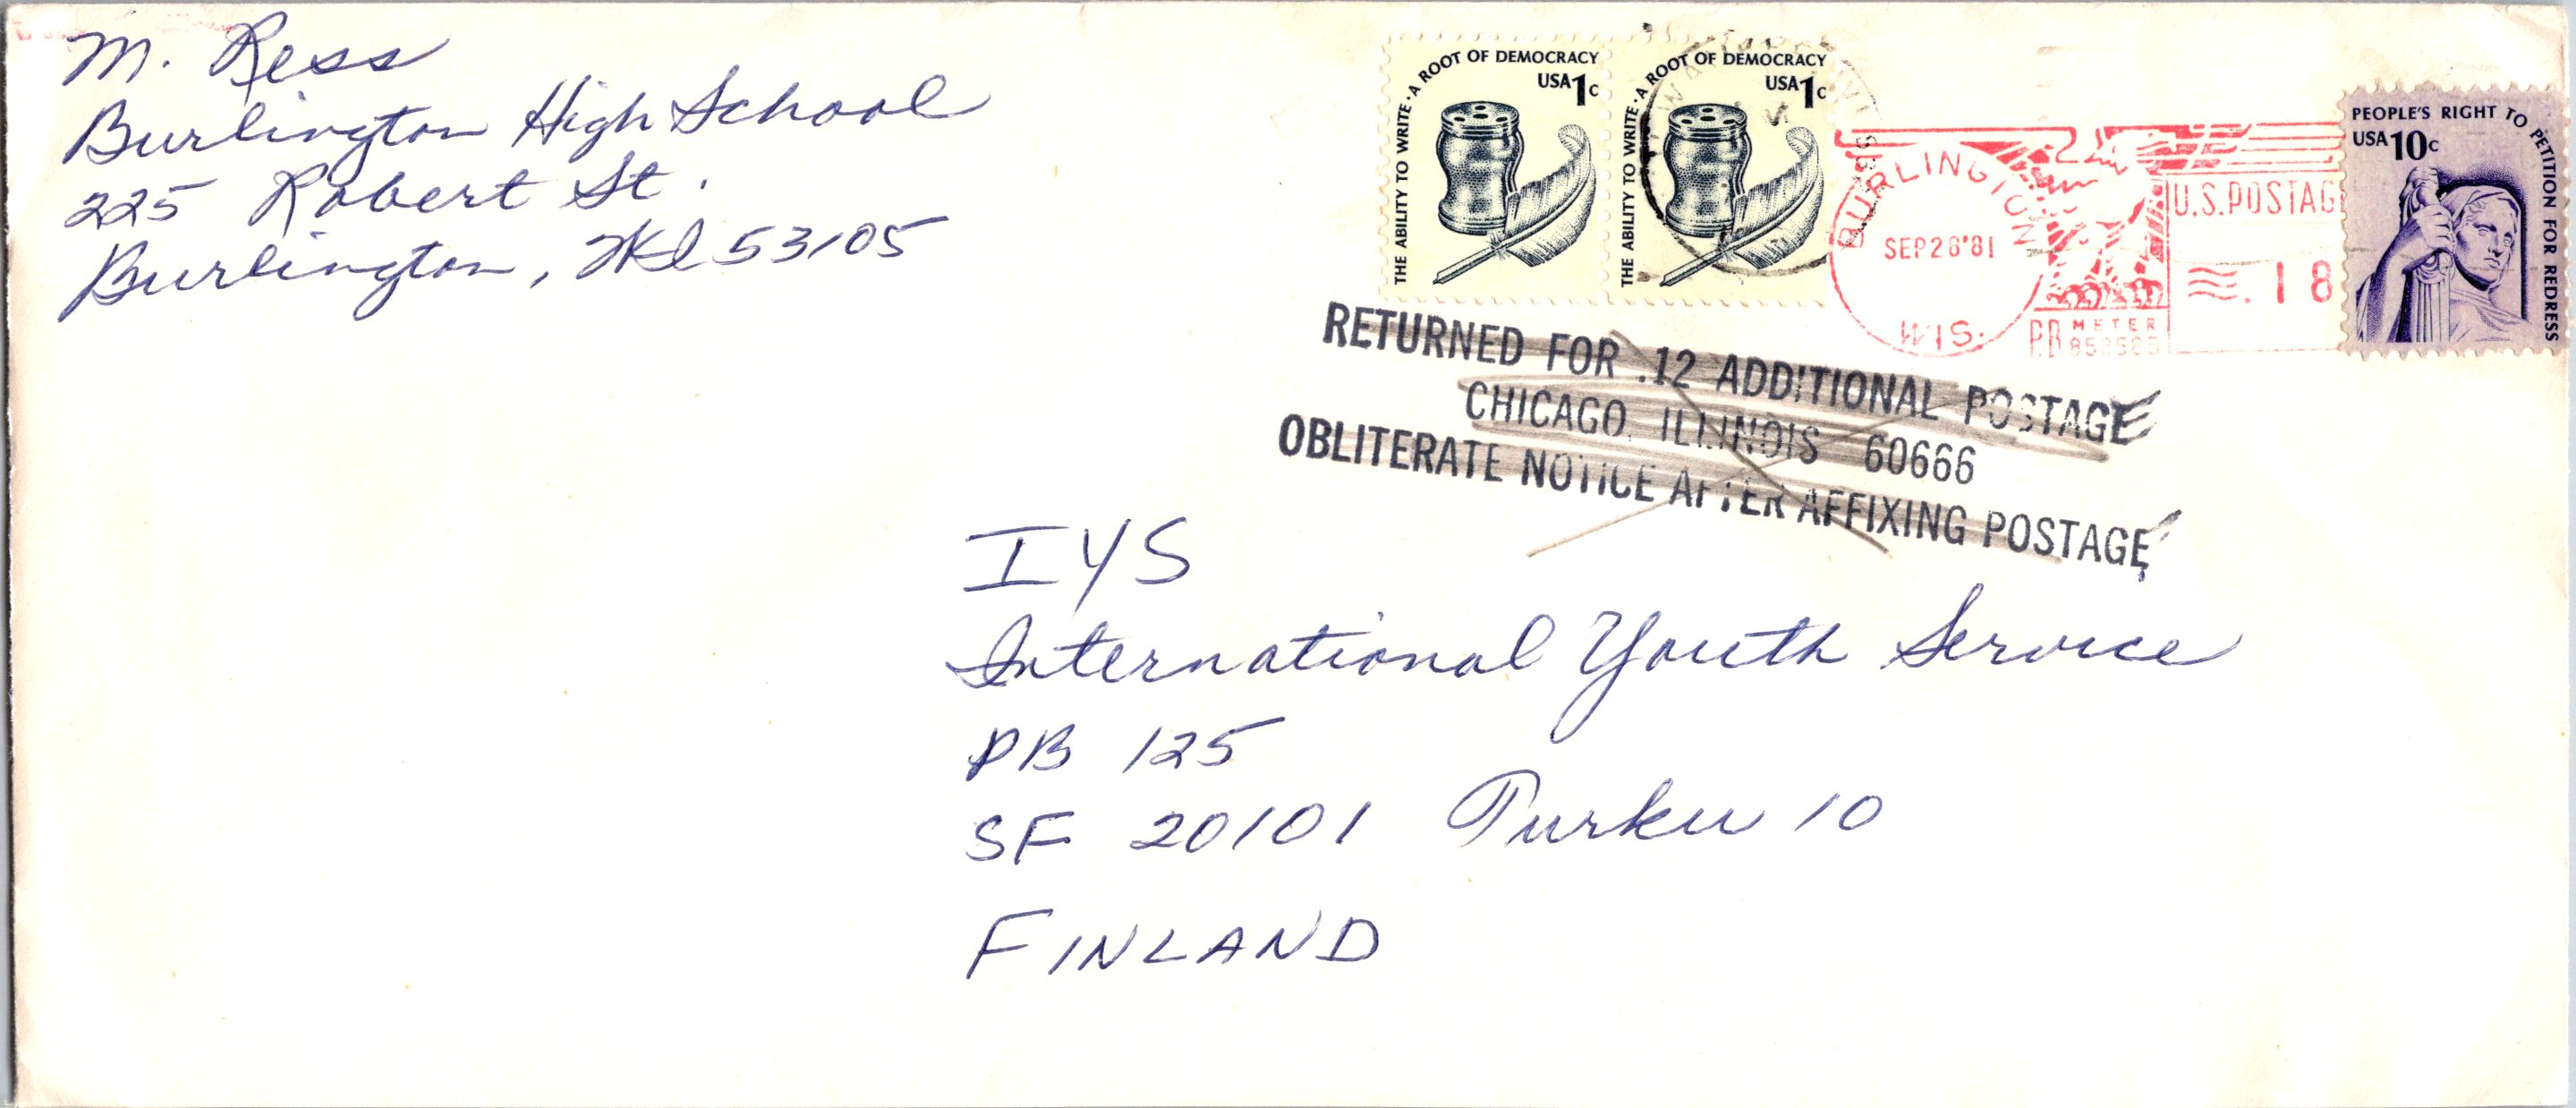 M. Ress
Burlington High School
225 Robert St.
Burlington, WI 53105
THE ABILITY TO WRITE · A ROOT OF DEMOCRACY
USA 1c
THE ABILITY TO WRITE · A ROOT OF DEMOCRACY
USA 1c
BURLINGTON
SEP 28 '81
WIS.
P.B. METER
U.S. POSTAGE
.18
PEOPLE'S RIGHT TO PETITION FOR REDRESS
USA 10c
RETURNED FOR .12 ADDITIONAL POSTAGE
CHICAGO, ILLINOIS 60666
OBLITERATE NOTICE AFTER AFFIXING POSTAGE
IYS
International Youth Service
PB 125
SF 20101 Turku 10
FINLAND